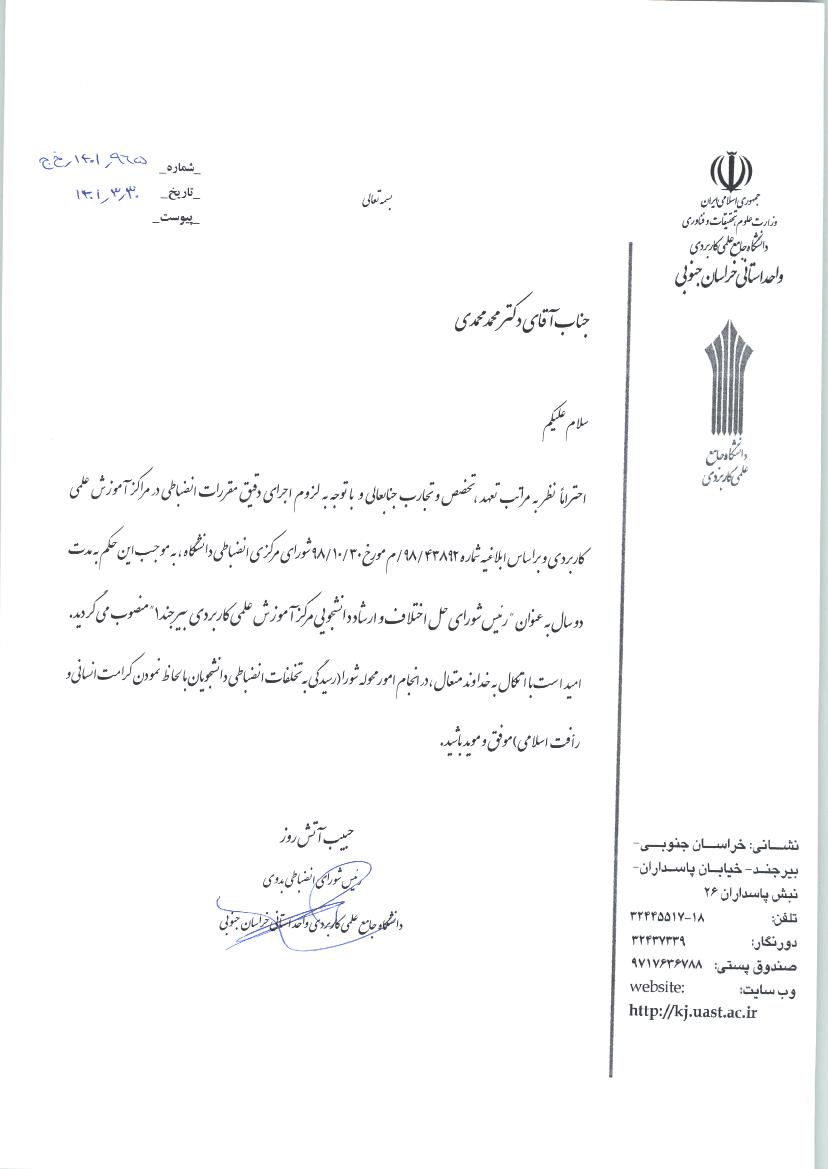 جمهوری اسلامی ایران
وزارت علوم، تحقیقات و فناوری
دانشگاه جامع علمی کاربردی
واحد استانی خراسان جنوبی
شماره ۱۴۰۱٫۹۶۵٫خ ج
تاریخ ۱۴۰۱٫۳٫۳۰
پیوست
بسمه تعالی
دانشگاه جامع
علمی کاربردی
جناب آقای دکتر محمد محمدی
سلام علیکم
احتراماً نظر به مراتب تعهد، تخصص و تجارب جنابعالی و با توجه به لزوم اجرای دقیق مقررات انضباطی در مراکز آموزش علمی
کاربردی و براساس ابلاغیه شماره ۹۸/۴۳۸۹۲/م مورخ ۹۸/۱۰/۳۰ شورای مرکزی انضباطی دانشگاه، به موجب این حکم به مدت
دو سال به عنوان "رئیس شورای حل اختلاف و ارشاد دانشجویی مرکز آموزش علمی کاربردی بیرجند۱" منصوب می گردید.
امید است با اتکال به خداوند متعال، در انجام امور محوله شورا (رسیدگی به تخلفات انضباطی دانشجویان با لحاظ نمودن کرامت انسانی و
رأفت اسلامی) موفق و موید باشید.
حبیب آتش روز
رئیس شورای انضباطی بدوی
دانشگاه جامع علمی کاربردی واحد استانی خراسان جنوبی
نشانی: خراسان جنوبی-
بیرجند- خیابان پاسداران-
نبش پاسداران ۲۶
تلفن: ۳۲۴۴۵۵۱۷-۱۸
دورنگار: ۳۲۴۳۷۳۳۹
صندوق پستی: ۹۷۱۷۶۳۶۷۸۸
وب سایت: website:
http://kj.uast.ac.ir